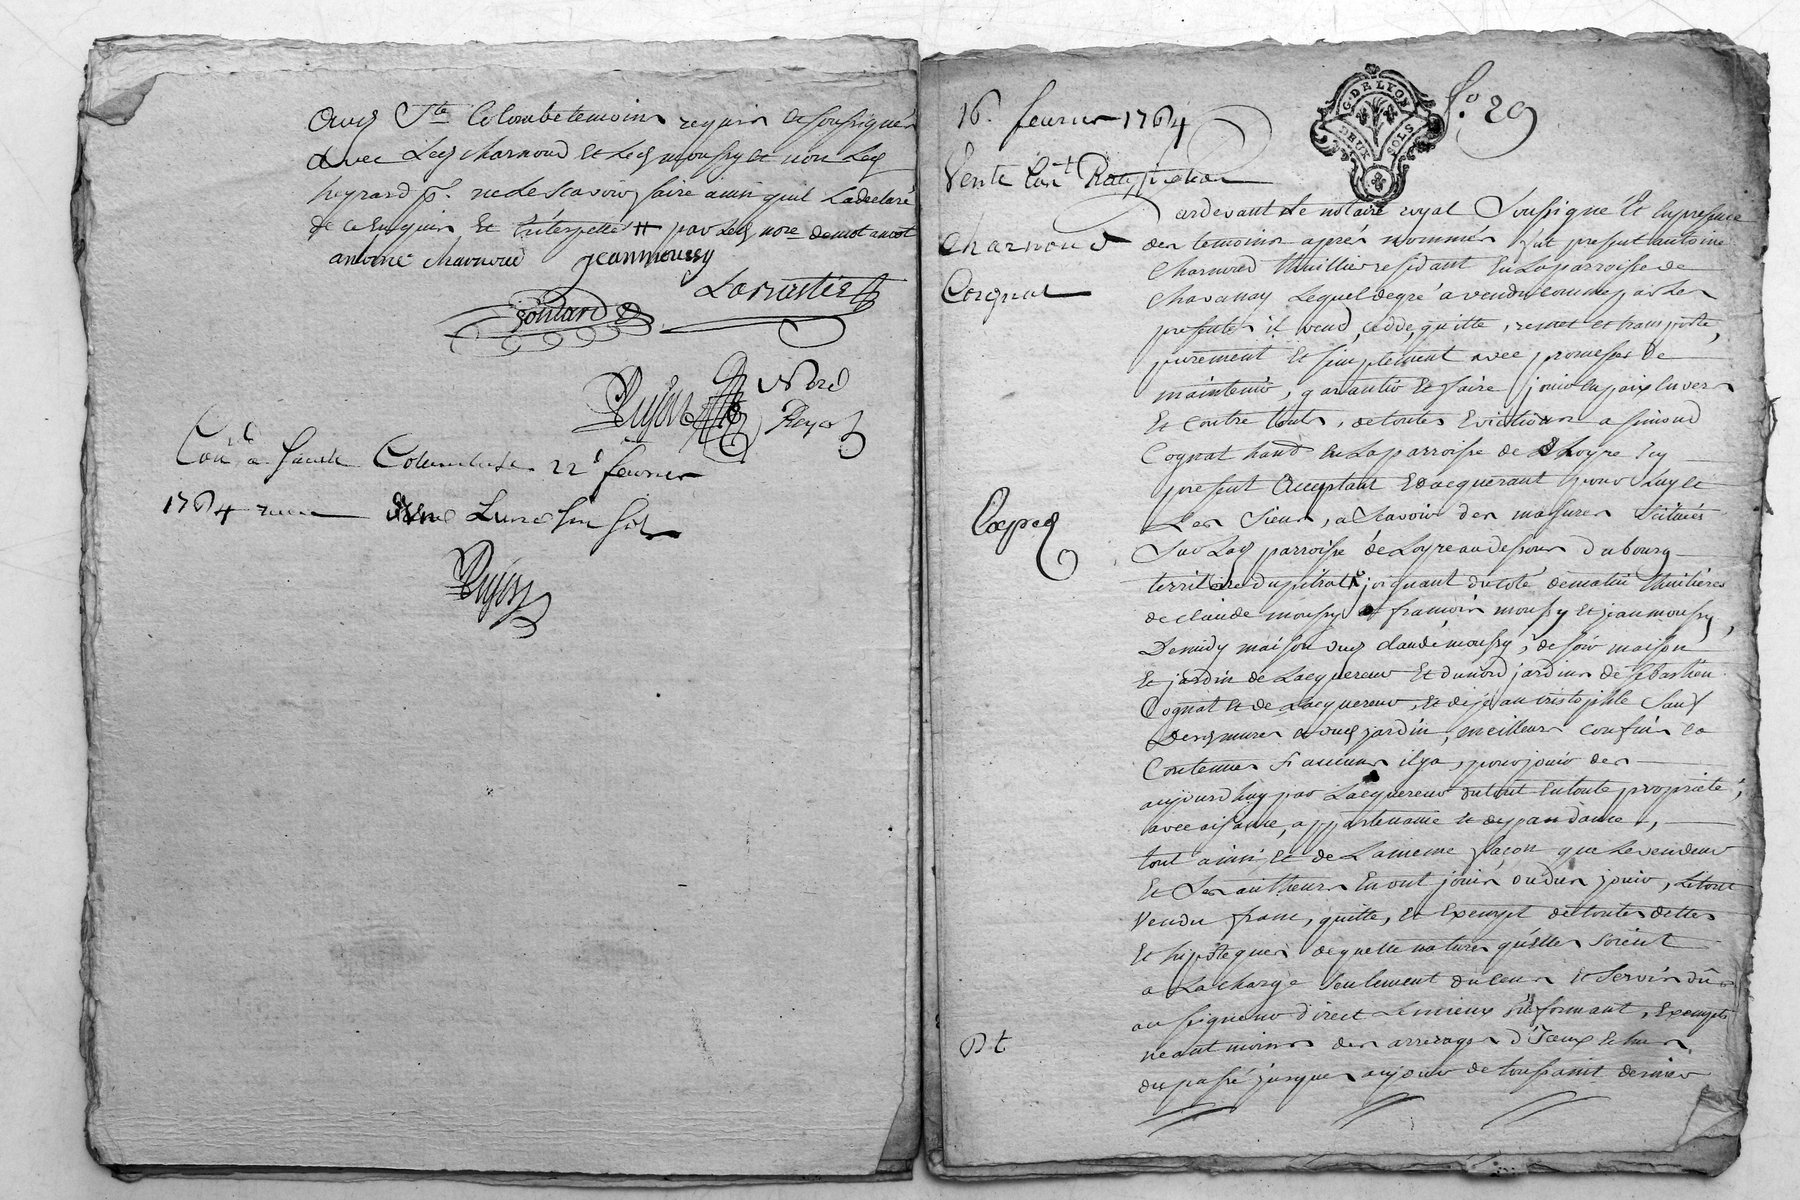 audt Ste Colombe temoins requis et soussignés
avec Led Charnoud et Led moussy et non Led
heyrard pr. ne le scavoir faire ainsi quil la declaré
de ce enquis et interpellé par Led nore
antoine charnoud jean moussy
Goutard
Dujon
Con à Sainte Colombe 22e fevrier
1764
Dujon
16. fevrier 1764
fo. 29
G. DE LYON
DEUX SOLS
Vente
Charnoud
Cognat
ardevant Le notaire royal Soussigné Et en presence
des temoins aprés nommés fut present antoine
Charnoud thuillier residant en La parroisse de
Chavanay Lequel de gré a vendu comme par les
presentes il vend, cedde, quitte, remet et transporte,
purement et simplement avec promesses de
maintenir, garantir et faire jouir en paix envers
Et contre touts, de toutes evictions a simond
Cognat habd en La parroisse de Loyre icy
present acceptant et acquerant pour Luy et
Les Siens, a Scavoir des masures Scituées
Sur Lad parroisse de Loyre au dessous du bourg
territoire du joignant du coté de matin thuilieres
de claude moussy françois moussy et jean moussy,
De midy maison dud claude moussy, de soir maison
Et jardin de Lacquereur Et du nord jardins de sebastien
Cognat et de Lacquereur, Et de jean cristophle Sauf
Desd mures audt jardin, meilleurs confins et
Contenues si aucuns il ya, pour jouir des
aujourdhuy par Lacquereur du tout en toute proprieté,
avec aisance, appartenance et dependance,
tout ainsi et de La meme façon que Le vendeur
Et Ses autheurs En ont jouis ou du jouir, Le tout
Vendu franc, quitte, et Exempt de toutes dettes
Et hipoteques de quelle nature qu'elles soient
a La charge Seulement du cens et Servis dûs
au seigneur direct Le mieux informant, Exempts
neant moins des arrerages d'Iceux et
du passé jusques au jour de toussaint dernier